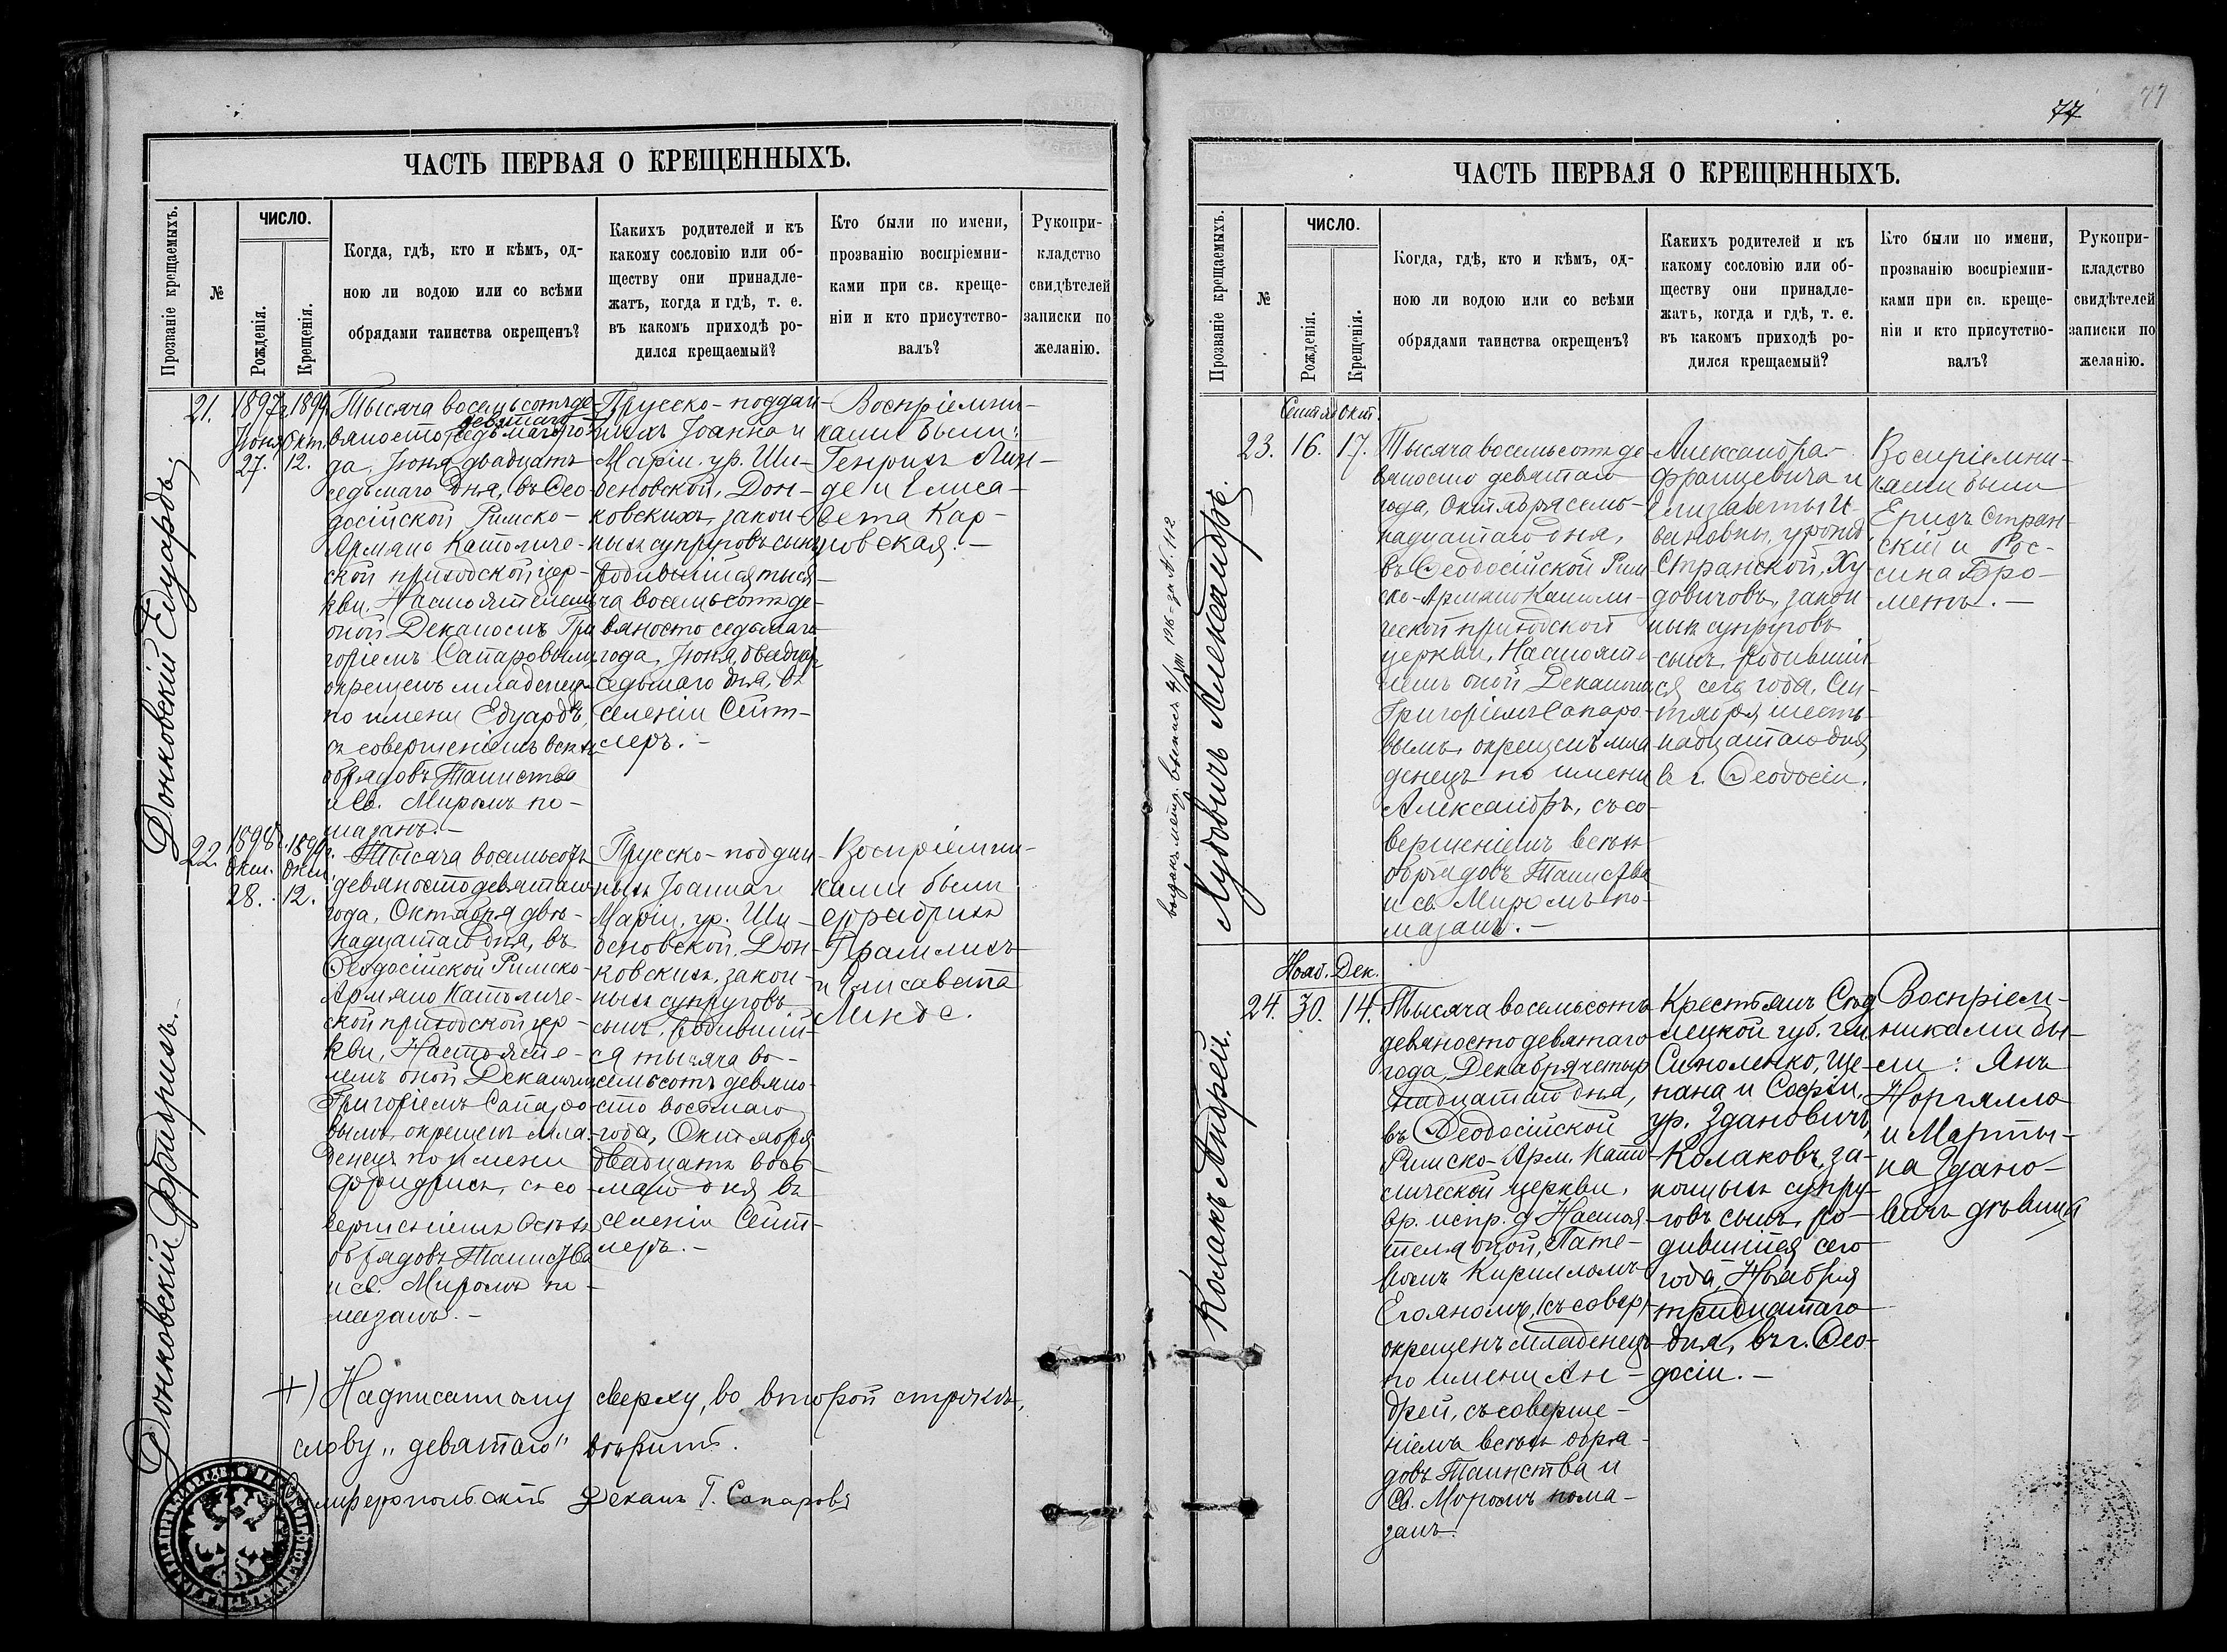 ЧАСТЬ ПЕРВАЯ О КРЕЩЕННЫХЪ.
Прозваніе крещаемыхъ.
№
ЧИСЛО.
Рожденія.
Крещенія.
Когда, гдѣ, кто и кѣмъ, од-
ною ли водою или со всѣми
обрядами таинства окрещенъ?
Какихъ родителей и къ
какому сословію или об-
ществу они принадле-
жатъ, когда и гдѣ, т. е.
въ какомъ приходѣ ро-
дился крещаемый?
Кто были по имени,
прозванію воспріемни-
ками при св. креще-
ніи и кто присутство-
валъ?
Рукопри-
кладство
свидѣтелей
записки по
желанію.
Донковскій Едуардъ.
21.
1897г.
Іюня
27.
1899г.
Окт.
12.
Тысяча восемьсотъ де-
девятаго
вяносто седьмаго го-
да, Іюня двадцать
седьмаго дня, въ Ѳео-
досійской Римско-
Армяно Католиче-
ской приходской цер-
кви, Настоятелемъ
оной Деканомъ Гри
горіемъ Сапаровымъ
окрещенъ младенецъ
по имени Едуардъ,
съ совершеніемъ всѣхъ
обрядовъ Таинства
и Св. Миромъ по-
мазанъ. —
Прусско-поддан-
ныхъ Іоанна и
Маріи, ур. Ши-
деновской, Дон-
ковскихъ, закон-
ныхъ супруговъ сынъ
родившійся тыся-
ча восемьсотъ де-
вяносто седьмаго
года, Іюня двадцать
седьмаго дня, въ
селеніи Сейт-
леръ. —
Воспріемни-
ками были:
Генрихъ Лин-
де и Елиса-
вета Кар-
повская. —
Донковскій Фридрихъ.
22.
1898г.
Окт.
28.
1899г.
Окт.
12.
Тысяча восемьсотъ
девяносто девятаго
года, Октября двѣ-
надцатаго дня, въ
Ѳеодосійской Римско-
Армяно Католиче-
ской приходской цер-
кви, Настояте-
лемъ оной Деканомъ
Григоріемъ Сапаро-
вымъ, окрещенъ мла-
денецъ по имени
Фридрихъ, съ со-
вершеніемъ всѣхъ
обрядовъ Таинства
и св. Миромъ по-
мазанъ. —
Прусско-поддан-
ныхъ Іоанна и
Маріи, ур. Ши-
деновской, Дон-
ковскихъ, закон-
ныхъ супруговъ
сынъ, родившій-
ся тысяча во-
семьсотъ девяно-
сто восьмаго
года, Октября
двадцать вось-
маго дня въ
селеніи Сейт-
леръ. —
Воспріемни-
ками были
Фридрихъ
Грамлихъ
и Елисавета
Линде.
+) Надписанному сверху, во второй строкѣ,
слову „девятаго" вѣрить.
Симферопольскій Деканъ Г. Сапаровъ
77
77
ЧАСТЬ ПЕРВАЯ О КРЕЩЕННЫХЪ.
Прозваніе крещаемыхъ.
№
ЧИСЛО.
Рожденія.
Крещенія.
Когда, гдѣ, кто и кѣмъ, од-
ною ли водою или со всѣми
обрядами таинства окрещенъ?
Какихъ родителей и къ
какому сословію или об-
ществу они принадле-
жатъ, когда и гдѣ, т. е.
въ какомъ приходѣ ро-
дился крещаемый?
Кто были по имени,
прозванію воспріемни-
ками при св. креще-
ніи и кто присутство-
валъ?
Рукопри-
кладство
свидѣтелей
записки по
желанію.
выданъ метр. выпись 4/VIII 1916 за № 112
Худовичъ Александръ.
23.
Сентяб.
16.
Окт.
17.
Тысяча восемьсотъ де
вяносто девятаго
года, Октября семь-
надцатаго дня,
въ Ѳеодосійской Рим
ско-Армяно Католи-
ческой приходской
церкви, Настояте-
лемъ оной Деканомъ
Григоріемъ Сапаро-
вымъ, окрещенъ мла
денецъ по имени
Александръ, съ со-
вершеніемъ всѣхъ
обрядовъ Таинства
и св. Миромъ по-
мазанъ. —
Александра
Францевича и
Елизаветы И-
вановны, урожд
Странской, Ху
довичовъ, закон
ныхъ супруговъ
сынъ, родившій
ся сего года, Сен-
тября шесть-
надцатаго дня
въ г. Ѳеодосіи.
Воспріемни-
ками были
Ерихъ Стран-
скій и Рос-
сина Бро-
метъ. —
Колакъ Андрей.
24.
Нояб.
30.
Дек.
14.
Тысяча восемьсотъ
девяносто девятаго
года, Декабря четыр
надцатаго дня,
въ Ѳеодосійской
Римско-Арм. Като
лической церкви,
вр. испр. д. Настоя-
теля оной, Пате-
ромъ Кирилломъ
Егояномъ, (съ совер)
окрещенъ младенецъ
по имени Ан-
дрей, съ соверше-
ніемъ всѣхъ обря-
довъ Таинства и
Св. Моромъ пома-
занъ.
Крестьянъ Сѣд
лецкой губ. гм.
Симоленко, Ще-
пана и Софіи,
ур. Здановичъ,
Колаковъ, за-
конныхъ супру-
говъ сынъ, ро-
дившійся сего
года, Ноября
тридцатаго
дня, въ г. Ѳео-
досіи. —
Воспріем-
никами бы-
ли: Янъ
Норгялло
и Марты-
на Здано-
вичъ дѣвица